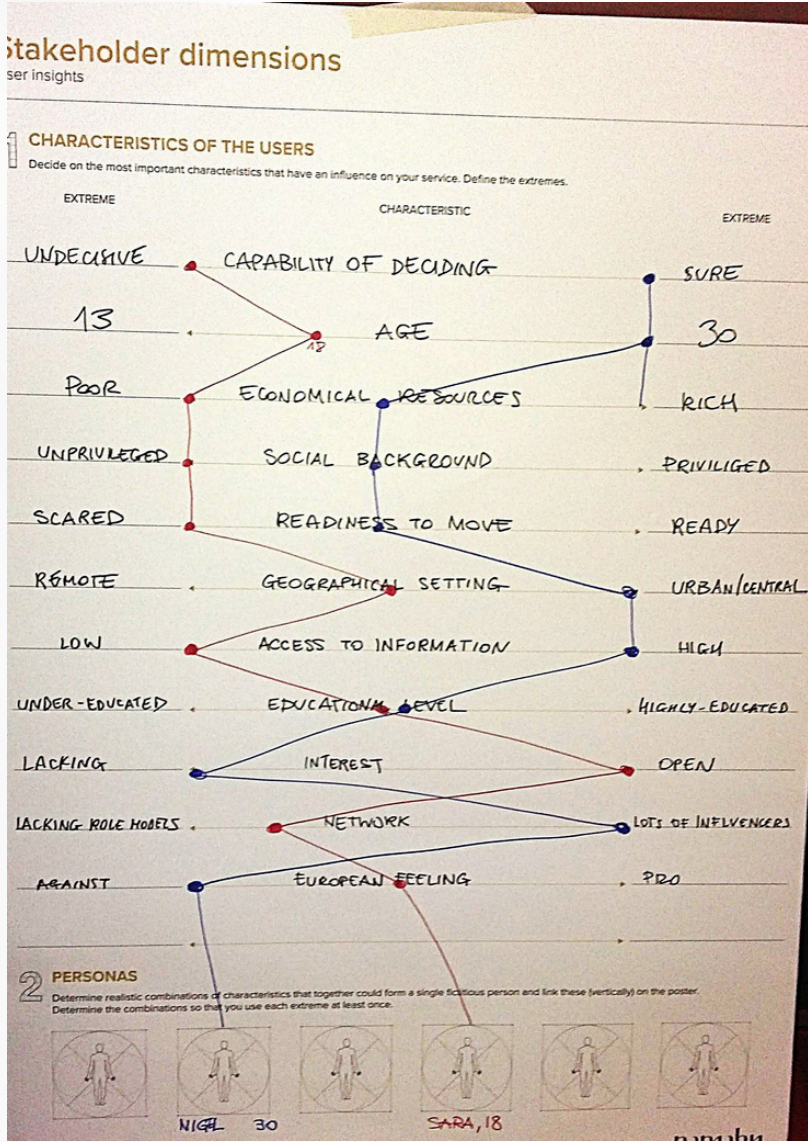 Stakeholder dimensions
ser insights
1 CHARACTERISTICS OF THE USERS
Decide on the most important characteristics that have an influence on your service. Define the extremes.
EXTREME CHARACTERISTIC EXTREME
UNDECISIVE CAPABILITY OF DECIDING SURE
13 AGE 30
18
POOR ECONOMICAL RESOURCES RICH
UNPRIVILEGED SOCIAL BACKGROUND PRIVILIGED
SCARED READINESS TO MOVE READY
REMOTE GEOGRAPHICAL SETTING URBAN/CENTRAL
LOW ACCESS TO INFORMATION HIGH
UNDER-EDUCATED EDUCATIONAL LEVEL HIGHLY-EDUCATED
LACKING INTEREST OPEN
LACKING ROLE MODELS NETWORK LOTS OF INFLUENCERS
AGAINST EUROPEAN FEELING PRO
2 PERSONAS
Determine realistic combinations of characteristics that together could form a single fictitious person and link these (vertically) on the poster.
Determine the combinations so that you use each extreme at least once.
NIGEL 30 SARA, 18